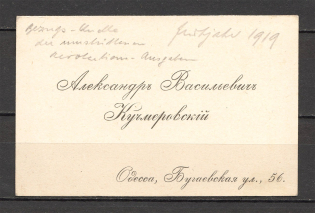 Bezugs-Quelle
der umstrittenen
Revolutions-Ausgaben
Frühjahr 1919
Александръ Васильевичъ
Кучморовскій
Одесса, Бугаевская ул., 56.